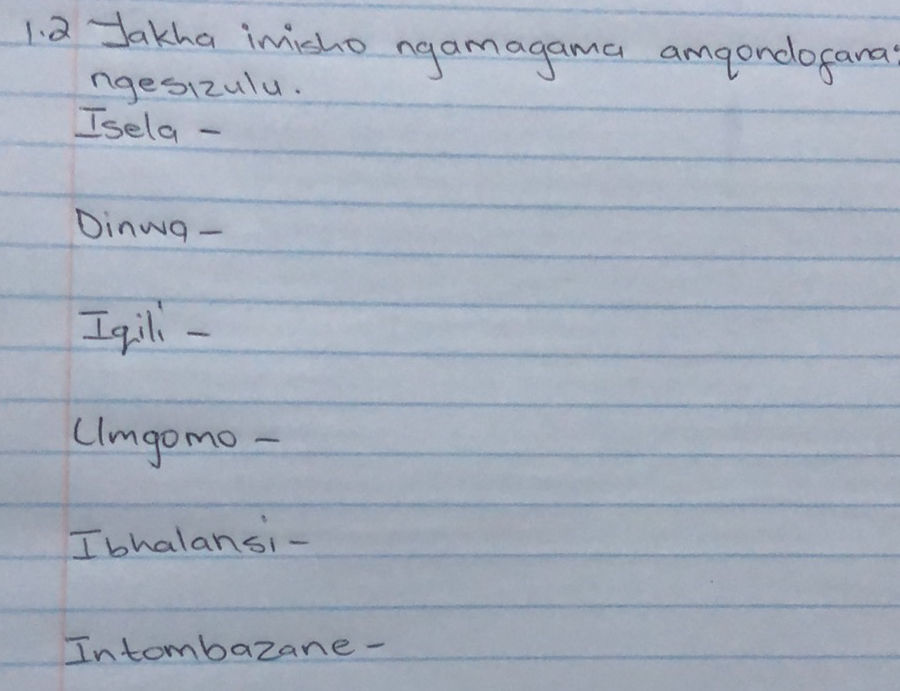 1.2 Yakha imisho ngamagama amqondofana:
ngesizulu.
Isela -
Dinwa -
Iqili -
Umgomo -
Ibhalansi -
Intombazane -